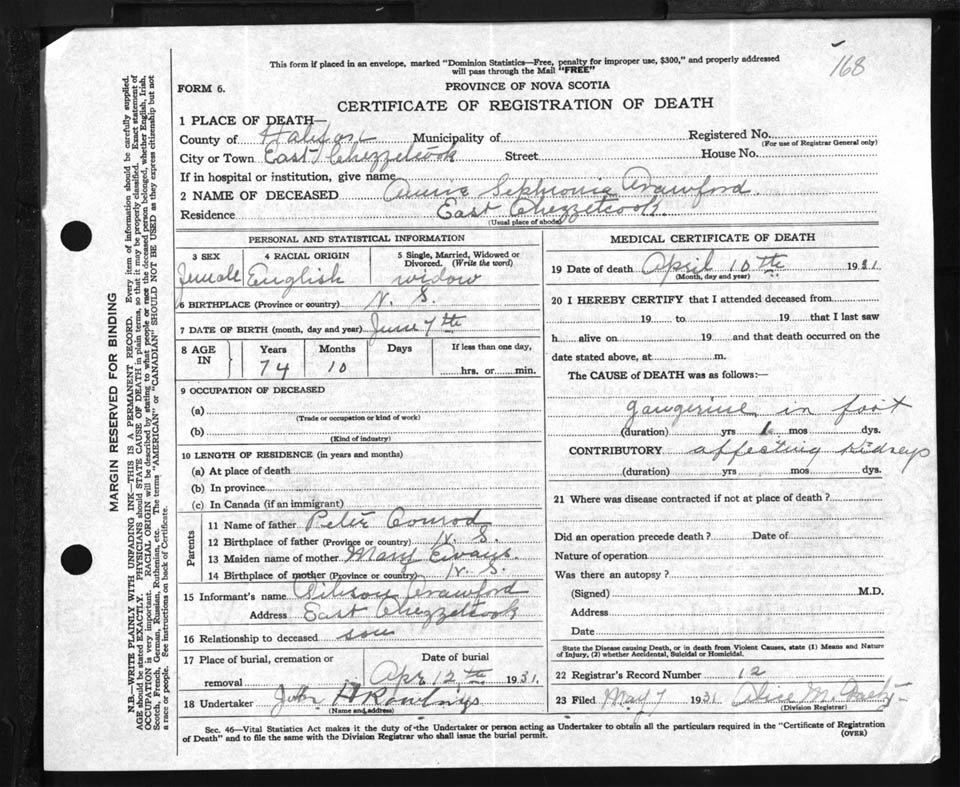 168
This form if placed in an envelope, marked "Dominion Statistics—Free, penalty for improper use, $300," and properly addressed
will pass through the Mail "FREE"
FORM 6.
PROVINCE OF NOVA SCOTIA
CERTIFICATE OF REGISTRATION OF DEATH
1 PLACE OF DEATH—
County of Halifax Municipality of Registered No.
(For use of Registrar General only)
City or Town East Chezzetcook Street House No.
If in hospital or institution, give name
2 NAME OF DECEASED Annie Sephronie Crawford
Residence East Chezzetcook.
(Usual place of abode)
PERSONAL AND STATISTICAL INFORMATION
3 SEX 4 RACIAL ORIGIN 5 Single, Married, Widowed or
Divorced. (Write the word)
Female English widow
6 BIRTHPLACE (Province or country) N. S.
7 DATE OF BIRTH (month, day and year) June 7th
8 AGE IN Years Months Days If less than one day,
74 10 hrs. or min.
9 OCCUPATION OF DECEASED
(a)
(Trade or occupation or kind of work)
(b)
(Kind of industry)
10 LENGTH OF RESIDENCE (in years and months)
(a) At place of death
(b) In province
(c) In Canada (if an immigrant)
Parents
11 Name of father Peter Conrod
12 Birthplace of father (Province or country) N. S.
13 Maiden name of mother Mary Evans.
14 Birthplace of mother (Province or country) N. S.
15 Informant's name Crawford
Address East Chezzetcook
16 Relationship to deceased son
17 Place of burial, cremation or Date of burial
removal Apr 12th 1931.
18 Undertaker John H Rawlings
(Name and address)
MEDICAL CERTIFICATE OF DEATH
19 Date of death April 10th 1931
(Month, day and year)
20 I HEREBY CERTIFY that I attended deceased from
19 to 19 that I last saw
h alive on 19 and that death occurred on the
date stated above, at m.
The CAUSE of DEATH was as follows:—
gangerine in foot
(duration) yrs 1 mos dys.
CONTRIBUTORY affecting kidneys
(duration) yrs mos dys.
21 Where was disease contracted if not at place of death?
Did an operation precede death? Date of
Nature of operation
Was there an autopsy?
(Signed) M.D.
Address
Date
State the Disease causing Death, or in death from Violent Causes, state (1) Means and Nature
of Injury, (2) whether Accidental, Suicidal or Homicidal.
22 Registrar's Record Number 12
23 Filed May 7 1931 Alice M.
(Division Registrar)
Sec. 46—Vital Statistics Act makes it the duty of the Undertaker or person acting as Undertaker to obtain all the particulars required in the "Certificate of Registration
of Death" and to file the same with the Division Registrar who shall issue the burial permit.
(OVER)
MARGIN RESERVED FOR BINDING
N.B.—WRITE PLAINLY WITH UNFADING INK—THIS IS A PERMANENT RECORD. Every item of information should be carefully supplied.
AGE should be stated EXACTLY. PHYSICIANS should STATE CAUSE OF DEATH in plain terms, so that it may be properly classified. Exact statement of
OCCUPATION is very important. RACIAL ORIGIN will be described by stating to what people or race the deceased person belonged, whether English, Irish,
Scotch, French, German, Russian, Ruthenian, etc. The terms "AMERICAN" or "CANADIAN" SHOULD NOT BE USED as they express citizenship but not
a race or people. See instructions on back of Certificate.